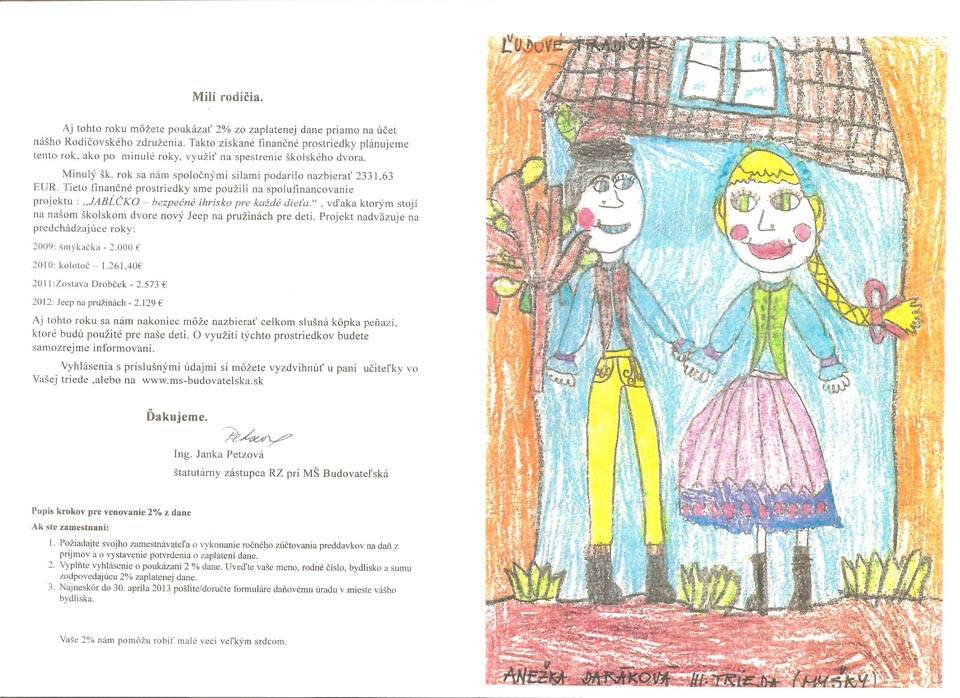 Milí rodičia.
Aj tohto roku môžete poukázať 2% zo zaplatenej dane priamo na účet
nášho Rodičovského združenia. Takto získané finančné prostriedky plánujeme
tento rok, ako po minulé roky, využiť na spestrenie školského dvora.
Minulý šk. rok sa nám spoločnými silami podarilo nazbierať 2331,63
EUR. Tieto finančné prostriedky sme použili na spolufinancovanie
projektu : „JABĹČKO – bezpečné ihrisko pre každé dieťa.“ , vďaka ktorým stojí
na našom školskom dvore nový Jeep na pružinách pre deti. Projekt nadväzuje na
predchádzajúce roky:
2009: šmýkačka - 2.000 €
2010: kolotoč – 1.261,40€
2011:Zostava Drobček - 2.573 €
2012: Jeep na pružinách - 2.129 €
Aj tohto roku sa nám nakoniec môže nazbierať celkom slušná kôpka peňazí,
ktoré budú použité pre naše deti. O využití týchto prostriedkov budete
samozrejme informovaní.
Vyhlásenia s príslušnými údajmi si môžete vyzdvihnúť u pani učiteľky vo
Vašej triede ,alebo na www.ms-budovatelska.sk
Ďakujeme.
Ing. Janka Petzová
štatutárny zástupca RZ pri MŠ Budovateľská
Popis krokov pre venovanie 2% z dane
Ak ste zamestnaní:
1. Požiadajte svojho zamestnávateľa o vykonanie ročného zúčtovania preddavkov na daň z
príjmov a o vystavenie potvrdenia o zaplatení dane.
2. Vyplňte vyhlásenie o poukázaní 2 % dane. Uveďte vaše meno, rodné číslo, bydlisko a sumu
zodpovedajúcu 2% zaplatenej dane.
3. Najneskôr do 30. apríla 2013 pošlite/doručte formuláre daňovému úradu v mieste vášho
bydliska.
Vaše 2% nám pomôžu robiť malé veci veľkým srdcom.
ĽUDOVÉ TRADÍCIE
ANEŽKA DARÁKOVÁ III. TRIEDA (MYŠKY)